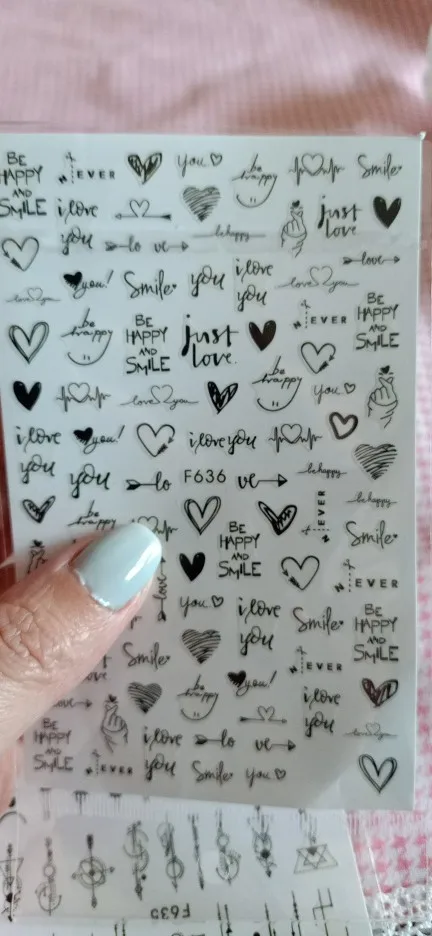 BE
HAPPY
AND
SMILE
EVER
you
be
happy
Smile
i love
you
lo ve
be happy
just
love
love
love you
you!
Smile
you
i love
you
love you
EVER
BE
HAPPY
AND
SMILE
be
happy
BE
HAPPY
AND
SMILE
just
love.
be
happy
you
love you
i love
you
you!
i love you
you
lo
F636
ve
be happy
be happy
EVER
be
happy
BE
HAPPY
AND
SMILE
Smile
love
EVER
you
i love
you
Smile
BE
HAPPY
AND
SMILE
Smile
EVER
be
happy
you!
i love
you
love you
BE
HAPPY
AND
SMILE
EVER
i love
you
lo ve
Smile
you
F635